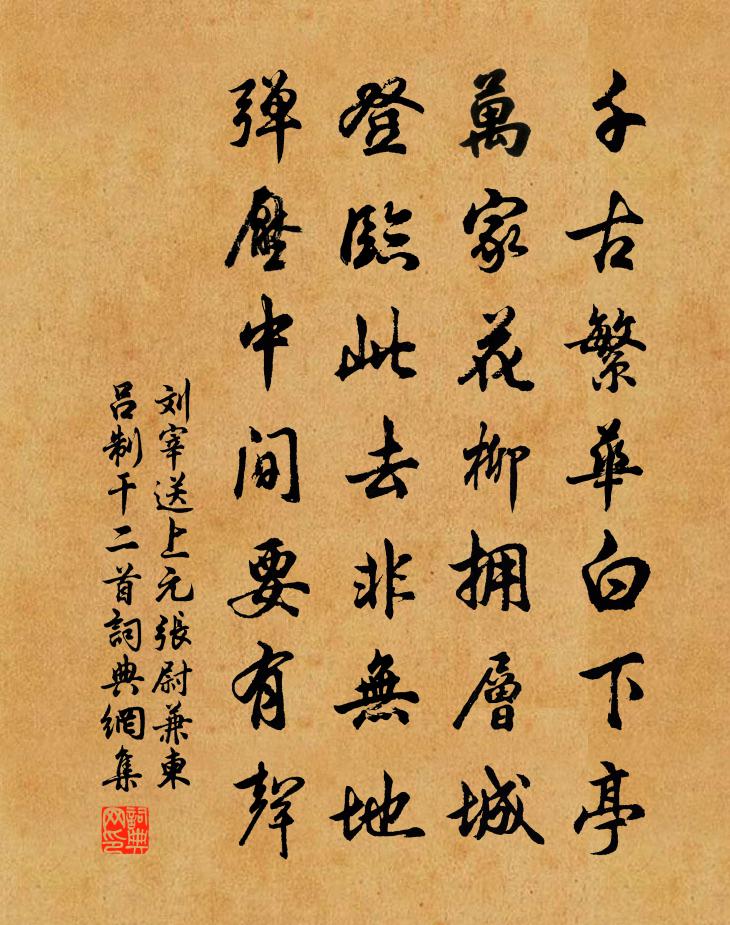 千古繁華白下亭
萬家花柳拥層城
登臨此去非無地
弹壓中间要有聲
刘宰送上元張尉兼東
吕制干二首詞典網集
詞典
网印